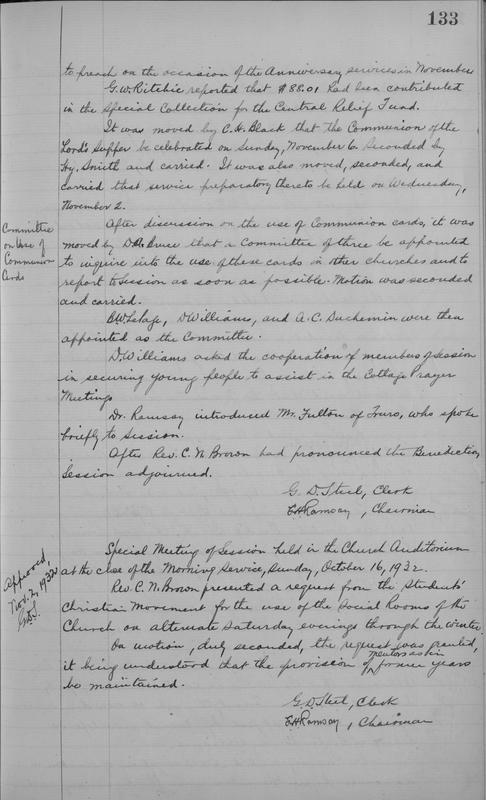 133
to preach on the occasion of the Anniversary services in November
G.W. Ritchie reported that $88.01 had been contributed
in the Special Collection for the Central Relief Fund.
It was moved by C.H. Black that the Communion of the
Lord's Supper be celebrated on Sunday, November 6. Seconded by
Hy. Smith and carried. It was also moved, seconded, and
carried that service preparatory thereto be held on Wednesday,
November 2.
Committee
on Use of
Communion
Cards
After discussion on the use of Communion cards, it was
moved by Bruce that a Committee of three be appointed
to inquire into the use of these cards in other churches and to
report to Session as soon as possible. Motion was seconded
and carried.
D. Williams, and A.C. Duchemin were then
appointed as the Committee.
D. Williams asked the cooperation of members of Session
in securing young people to assist in the Cottage Prayer
Meetings
Dr. Ramsay introduced Mr. Fulton of Truro, who spoke
briefly to Session.
After Rev. C.N. Brown had pronounced the Benediction
Session adjourned.
G.D. Steel, Clerk
E.H. Ramsay, Chairman
Approved,
Nov. 2, 1932
G.D.S.
Special Meeting of Session held in the Church Auditorium
at the close of the Morning Service, Sunday, October 16, 1932.
Rev. C.N. Brown presented a request from the Students'
Christian Movement for the use of the Social Rooms of the
Church on alternate Saturday evenings through the winter.
On motion, duly seconded, the request was granted,
it being understood that the provision of mentors as in former years
be maintained.
G.D. Steel, Clerk
E.H. Ramsay, Chairman